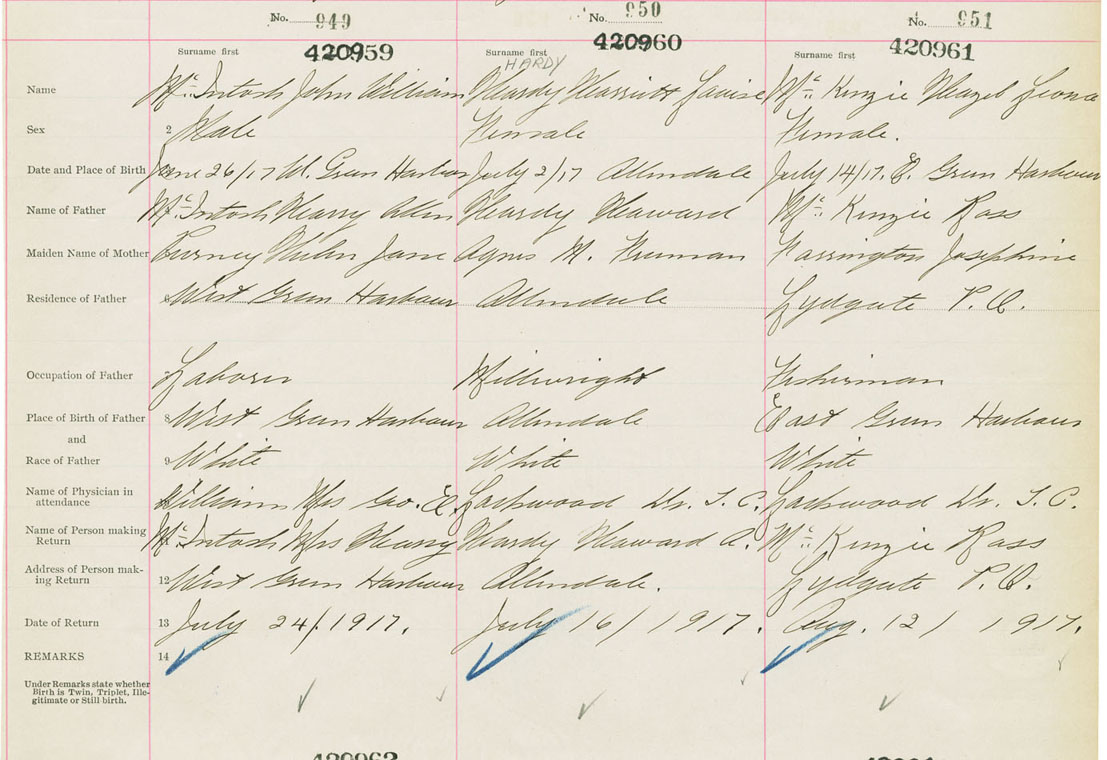 No. 949 No. 950 No. 951
420959 420960 420961
Surname first Surname first Surname first
HARDY
Name Mc Intosh John William Hardy Harriett Louise Mc Kinzie Hazel Leona
Sex 2 Male Female Female.
Date and Place of Birth June 26/17 W. Green Harbour July 2/17 Allendale July 14/17. E. Green Harbour
Name of Father Mc Intosh Harry Allen Hardy Howard Mc Kinzie Ross
Maiden Name of Mother Helen Jane Agnes M. Freeman Farrington Josephine
Residence of Father 6 West Green Harbour Allendale Lydgate P.O.
Occupation of Father 7 Laborer Millwright Fisherman
Place of Birth of Father 8 West Green Harbour Allendale East Green Harbour
and
Race of Father 9 White White White
Name of Physician in William Mrs Geo. E. Lockwood Dr. T. C. Lockwood Dr. T. C.
attendance
Name of Person making Mc Intosh Mrs Harry Hardy Howard A. Mc Kinzie Ross
Return
Address of Person mak- 12 West Green Harbour Allendale. Lydgate P.O.
ing Return
Date of Return 13 July 24/1917. July 16/1917. Aug. 12/1917.
REMARKS 14
Under Remarks state whether
Birth is Twin, Triplet, Ille-
gitimate or Still birth.